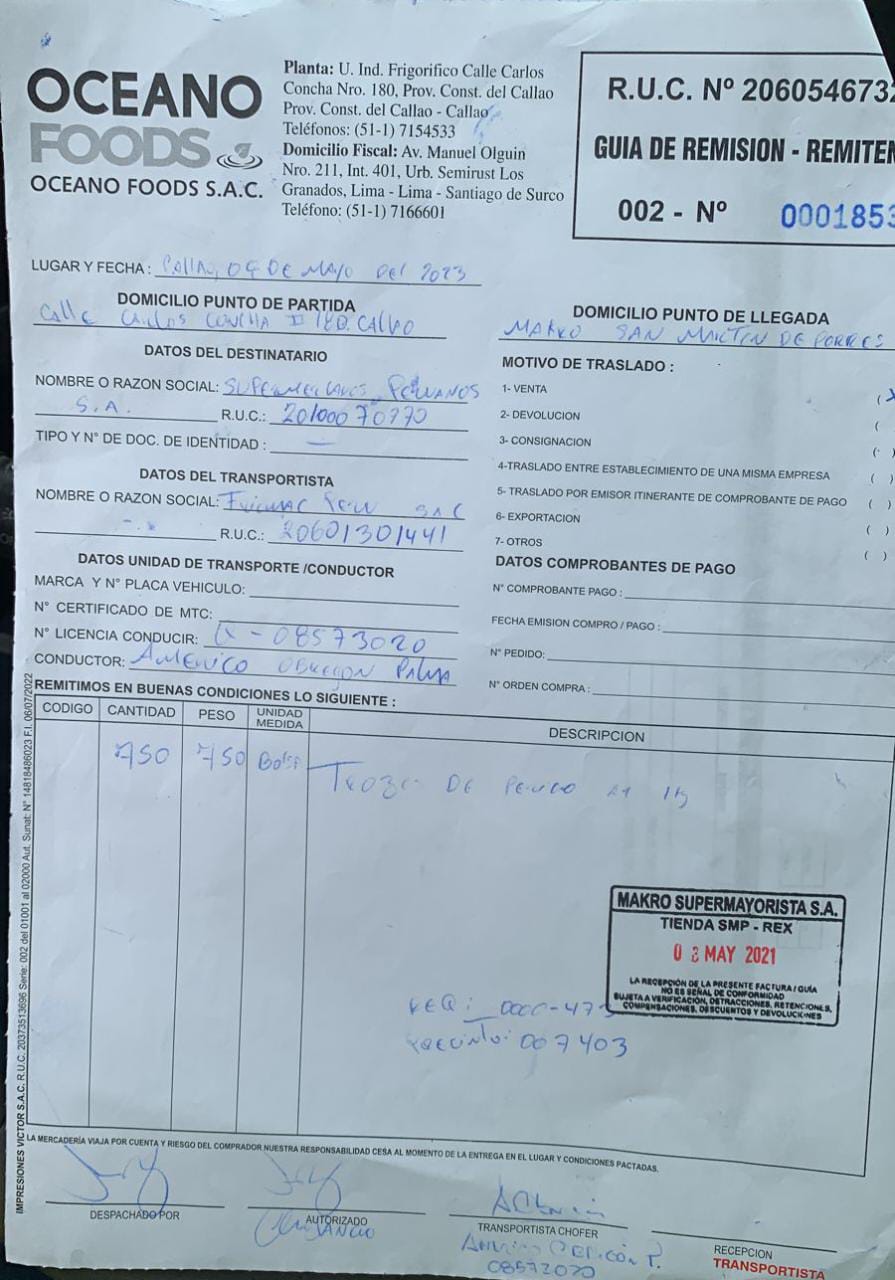 OCEANO
FOODS
OCEANO FOODS S.A.C.
Planta: U. Ind. Frigorifico Calle Carlos
Concha Nro. 180, Prov. Const. del Callao
Prov. Const. del Callao - Callao
Teléfonos: (51-1) 7154533
Domicilio Fiscal: Av. Manuel Olguin
Nro. 211, Int. 401, Urb. Semirust Los
Granados, Lima - Lima - Santiago de Surco
Teléfono: (51-1) 7166601
R.U.C. Nº 2060546732
GUIA DE REMISION - REMITEN
002 - Nº 0001853
LUGAR Y FECHA : Callao, 04 DE MAYO DEL 2023
DOMICILIO PUNTO DE PARTIDA
Calle Carlos CONCHA 180. CALLAO
DOMICILIO PUNTO DE LLEGADA
MAKRO SAN MARTIN DE PORRES
DATOS DEL DESTINATARIO
NOMBRE O RAZON SOCIAL: SUPERMERCADOS PERUANOS
S.A. R.U.C.: 20100070970
TIPO Y N° DE DOC. DE IDENTIDAD : —
MOTIVO DE TRASLADO :
1- VENTA (X
2- DEVOLUCION (
3- CONSIGNACION ( )
4-TRASLADO ENTRE ESTABLECIMIENTO DE UNA MISMA EMPRESA ( )
5- TRASLADO POR EMISOR ITINERANTE DE COMPROBANTE DE PAGO ( )
6- EXPORTACION ( )
7- OTROS ( )
DATOS DEL TRANSPORTISTA
NOMBRE O RAZON SOCIAL: PERU SAC
R.U.C.: 20601301441
DATOS UNIDAD DE TRANSPORTE /CONDUCTOR
MARCA Y N° PLACA VEHICULO:
N° CERTIFICADO DE MTC:
N° LICENCIA CONDUCIR: Q - 08573020
CONDUCTOR: AMERICO OBREGON PALMA
DATOS COMPROBANTES DE PAGO
N° COMPROBANTE PAGO :
FECHA EMISION COMPRO / PAGO :
N° PEDIDO:
N° ORDEN COMPRA :
REMITIMOS EN BUENAS CONDICIONES LO SIGUIENTE :
CODIGO CANTIDAD PESO UNIDAD MEDIDA DESCRIPCION
750 750 Bolsa TROZO DE PERICO 1 kg
MAKRO SUPERMAYORISTA S.A.
TIENDA SMP - REX
0 3 MAY 2021
LA RECEPCIÓN DE LA PRESENTE FACTURA / GUÍA
NO ES SEÑAL DE CONFORMIDAD
SUJETA A VERIFICACIÓN, DETRACCIONES, RETENCIONES,
COMPENSACIONES, DESCUENTOS Y DEVOLUCIONES
Precinto: 007403
LA MERCADERÍA VIAJA POR CUENTA Y RIESGO DEL COMPRADOR NUESTRA RESPONSABILIDAD CESA AL MOMENTO DE LA ENTREGA EN EL LUGAR Y CONDICIONES PACTADAS.
DESPACHADO POR
AUTORIZADO
TRANSPORTISTA CHOFER
08572020
RECEPCION
TRANSPORTISTA
IMPRESIONES VICTOR S.A.C. R.U.C. 20373513696 Serie: 002 del 01001 al 02000 Aut. Sunat: N° 14818486023 F.I. 06/07/2022